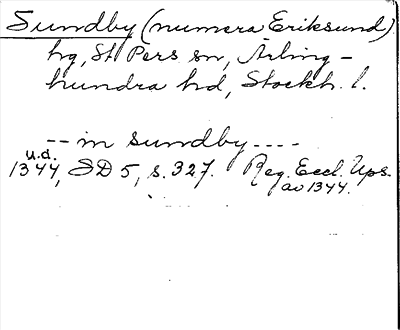 Sundby (numera Eriksund)
hg, St Pers sn, Ärling-
hundra hd, Stockh. l.
-- in sundby ----
u.d.
1344, SD 5, s. 327. Reg. Eccl. Ups.
av 1344.